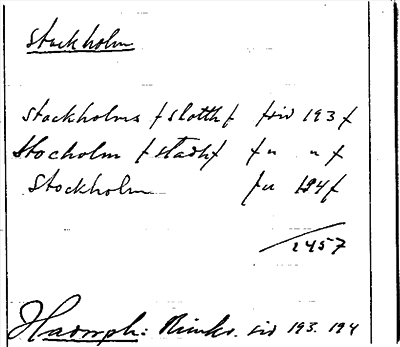 Stockholm
Stockholms (slottk) (sid 193)
Stocholm (stadk) (" ")
Stockholm (" 194)
1457
Hadorph: Rimkr. sid 193. 194